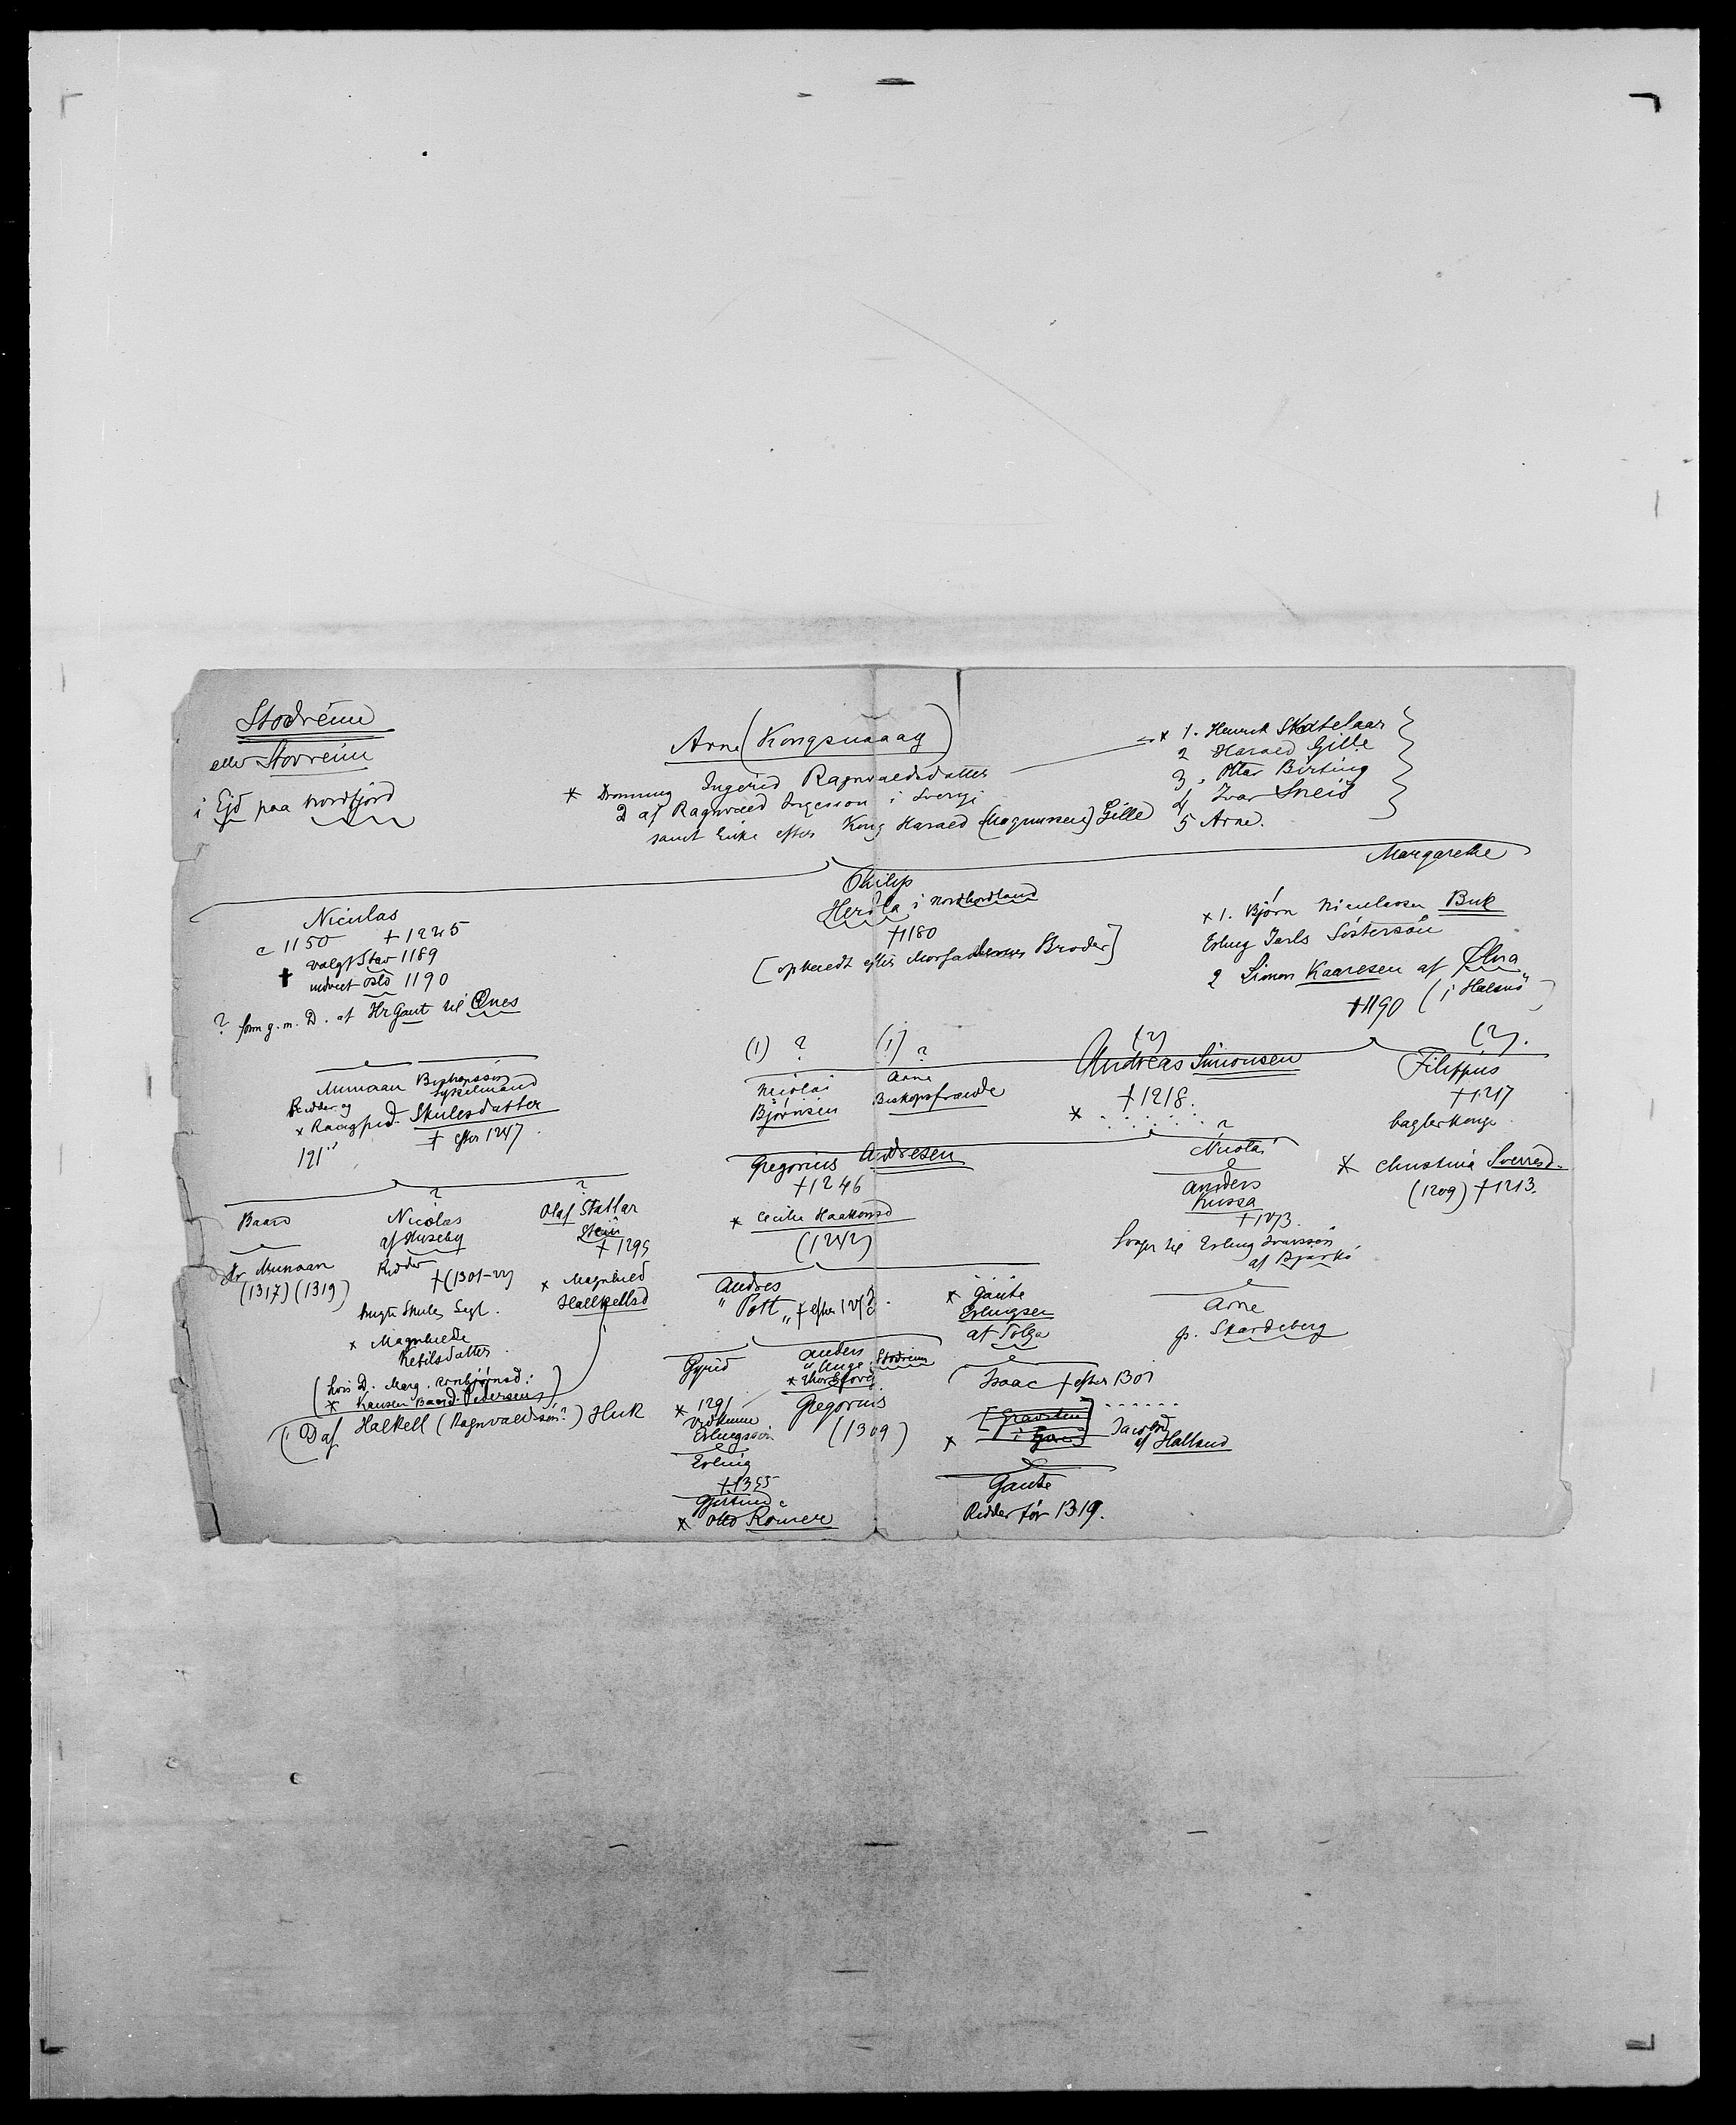 Stodreim
eller Stovreim
i Ejd paa Nordfjord
Arne (Kongsmaag)
* Dronning Ingerid Ragnvaldsdatter
D af Ragnvald Ingesson i Sverige
samt Enke efter Kong Harald (Magnussen) Gille
* 1. Henrik Skatelaar
2 Harald Gille
3. Ottar Birting
4 Ivar Sneis
5 Arne.
Niculas
c 1150 † 1225
† valgt Stav 1189
indviet Oslo 1190
? form g. m. D. af Hr Gaut til Ænes
Philip
Herdla i Nordhordland
† 1180
[opkaldt efter Morfaderens Broder]
Margarethe
* 1. Bjørn Niculassen Buk
Erling Jarls Søstersøn
2 Simon Kaaresen af Ølna
† 1190 (i Halsnø)
Munaan Biskopssøn
Ridder og Sysselmand
* Ragnfrid Skulesdatter
121" † efter 1247.
(1) ?
Nicolai
Bjørnsen
(1) ?
Arne
Biskopsfrænde
(2)
Andreas Simonsen
† 1218.
* . . . . . .
(2).
Filippus
† 1217
baglerkonge
* Christina Sverresd.
(1209) † 1213.
Baard
Hr Munaan
(1317) (1319)
?
Nicolas
af Huseby
Ridder
† (1301-22)
brugte Skules Segl.
* Magnhilde
Ketilsdatter
(hvis D. Marg. Arnbjørnsd:
* Kansler Baard Pedersen)
?
Olaf Stallar
Stein
† 1295
* Magnhild
Hallkellsd
(D af Halkell (Ragnvaldsøn?) Huk
Gregorius Andresen
† 1246
* Cecilie Haakonsd
(1242)
?
Nicolai
Anders
Kussa
† 1273.
Svoger til Erling Ivarssøn
af Bjarkö
Arne
p. Skardeberg
Andres
"Pott" † efter 1273.
* Gaute
Erlingsen
af Tolga
Gyrid
* 1291
Vidkunn
Erlingssøn
Erling
† 1355
Gjertrud
* Otto Rømer
Anders
"unge" Stodreim
* Thordsfovd.
Gregorius
(1309)
Isaac † efter 1301
[Gravsten
i Gran]
* ...... Jacobsd
af Halland
Gaute
Ridder før 1319.